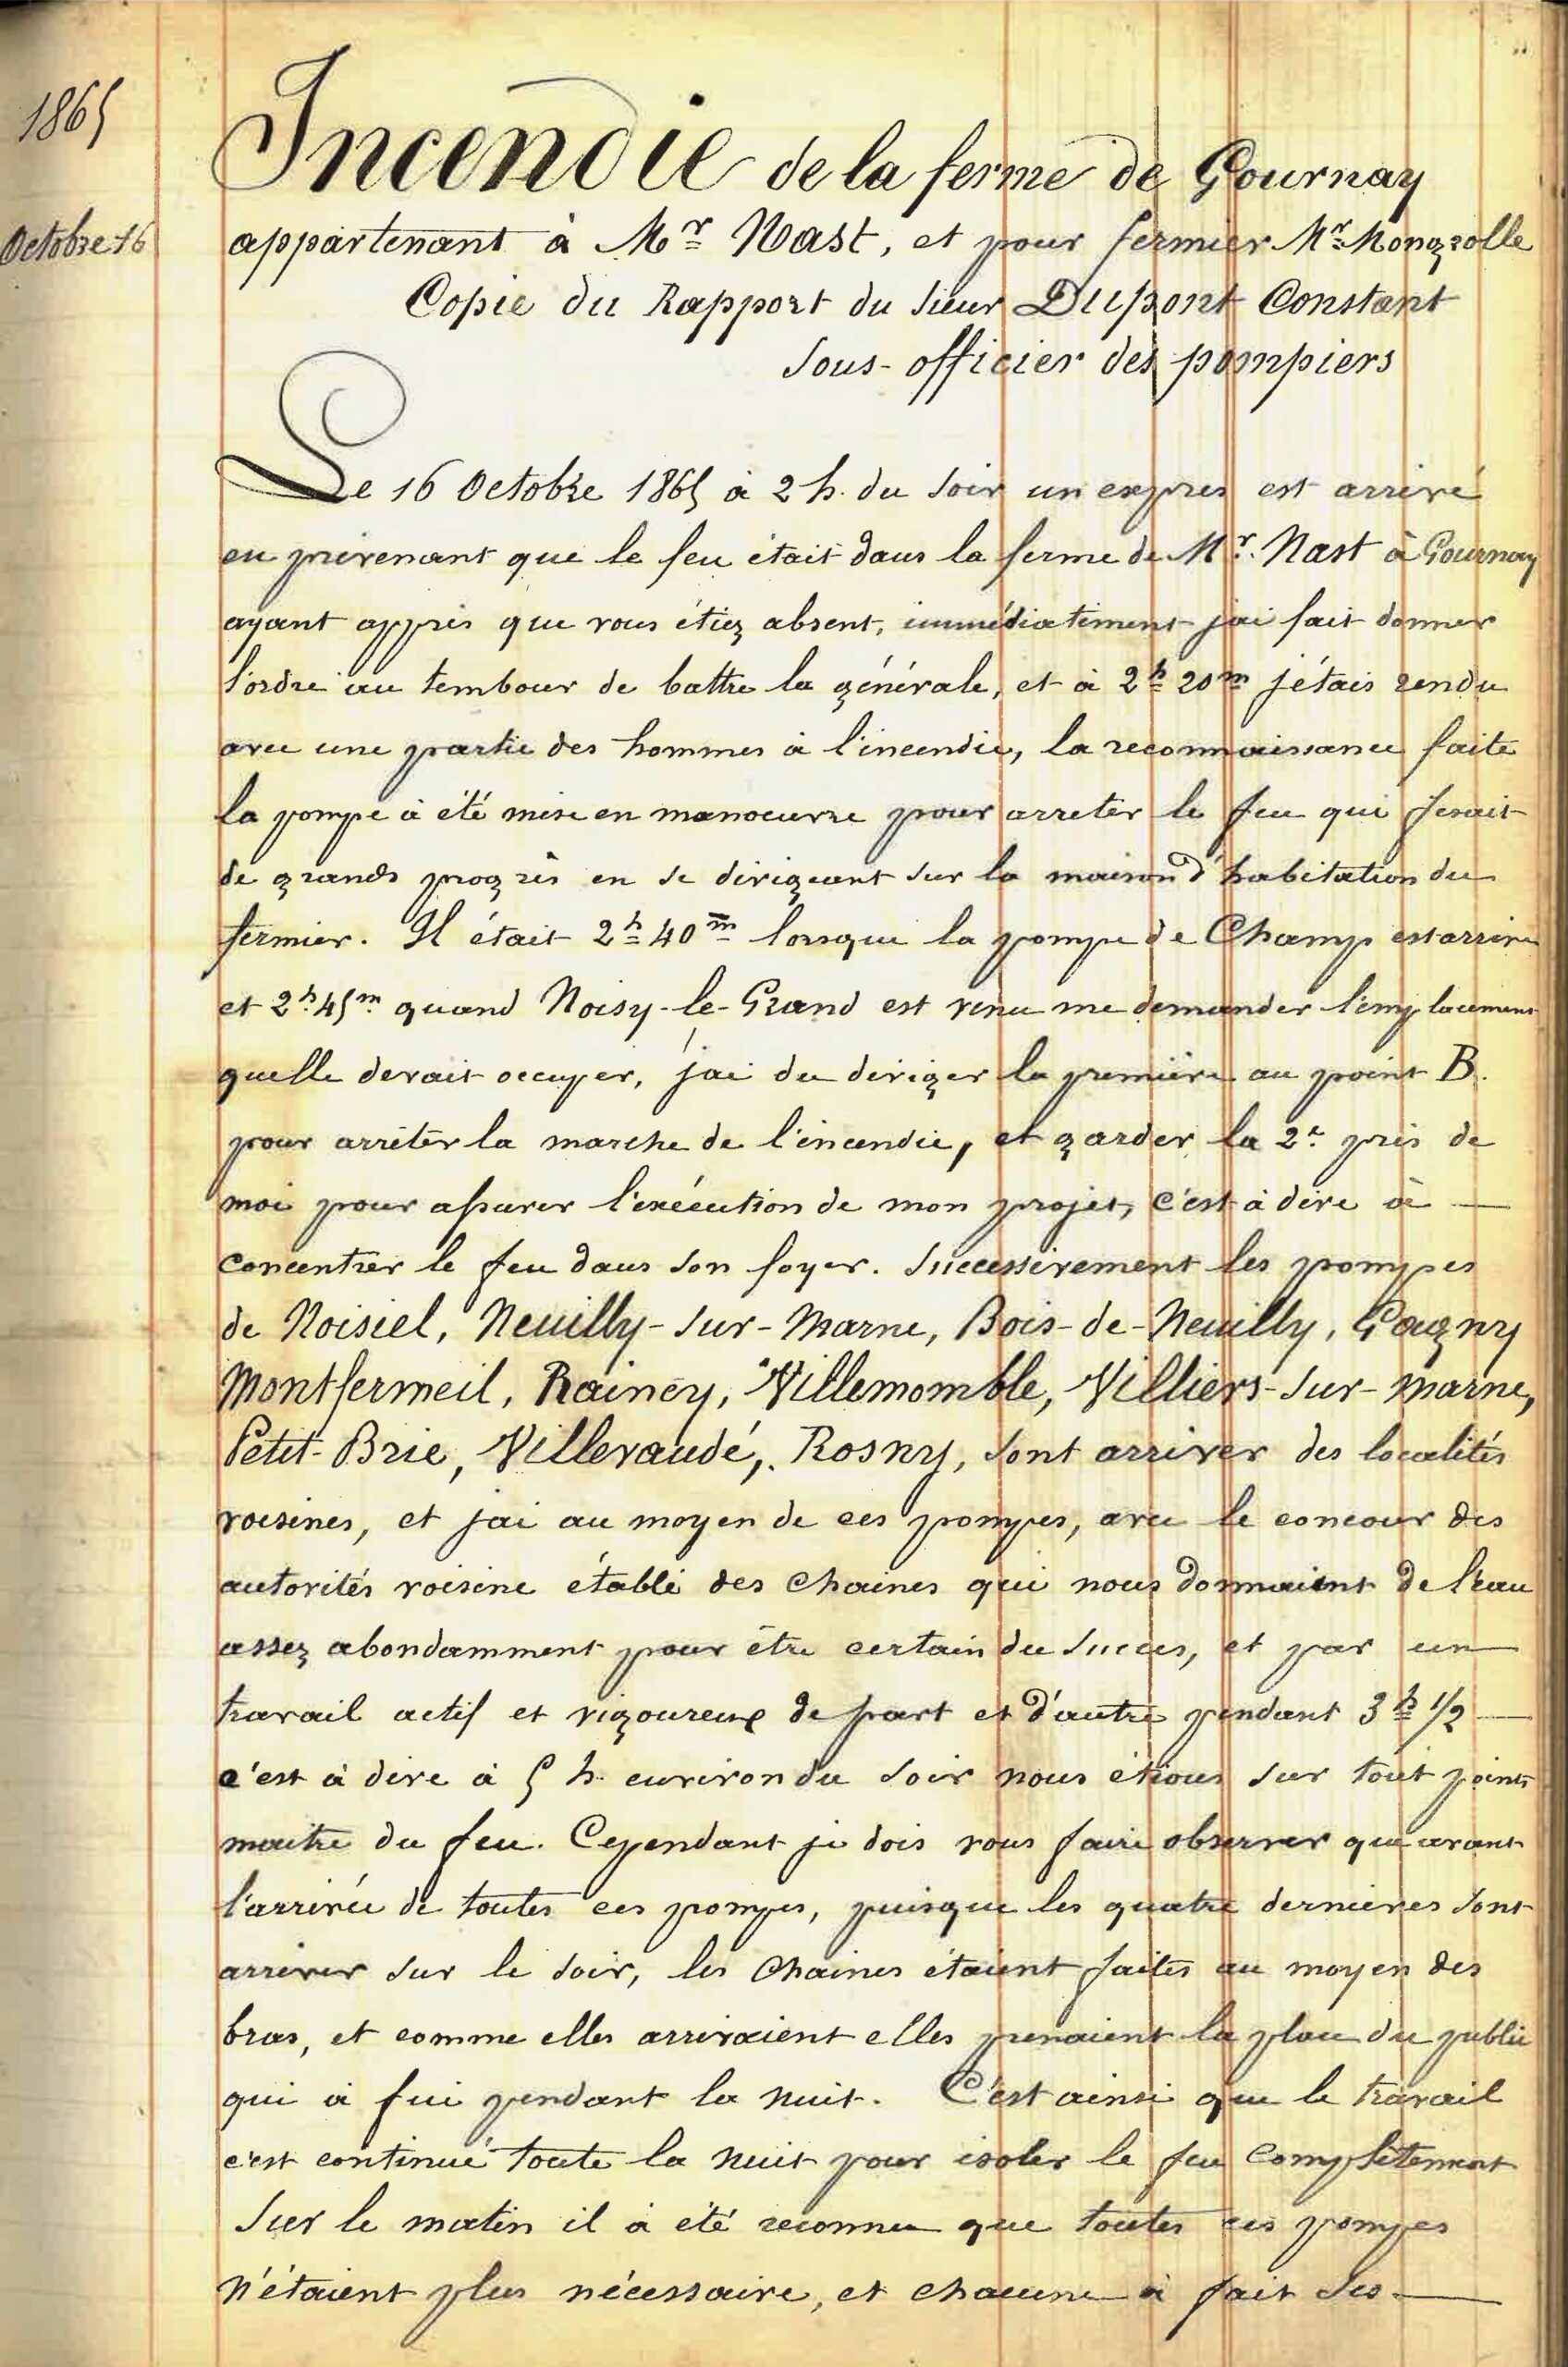 1865
Incendie de la ferme de Gournay
Octobre 16
appartenant à Mr Nast, et pour fermier Mr Mongrolle
Copie du Rapport du sieur Dupont Constant
Sous-officier des pompiers
Le 16 Octobre 1865 à 2 h. du soir un exprès est arrivé
en prévenant que le feu était dans la ferme de Mr. Nast à Gournay
ayant appris que vous étiez absent, immédiatement j'ai fait donner
l'ordre au tembour de battre la générale, et à 2h 20m j'étais rendu
avec une partie des hommes à l'incendie, la reconnaissance faite
la pompe à été mise en manoeuvre pour arreter le feu qui fesait
de grands progrès en se dirigeant sur la maison d'habitation du
fermier. Il était 2h 40m lorsque la pompe de Champ est arrivé
et 2h 45m quand Noisy-le-Grand est venu me demander l'emplacement
quelle devait occuper, j'ai du diriger la première au point B.
pour arrêter la marche de l'incendie, et garder la 2e près de
moi pour assurer l'exécution de mon projet, c'est à dire à —
concentrer le feu dans son foyer. Successivement les pompes
de Noisiel, Neuilly-sur-Marne, Bois-de-Neuilly, Gagny
Montfermeil, Raincy, Villemomble, Villiers-sur-Marne,
Petit-Brie, Villevaudé, Rosny, sont arriver des localités
voisines, et j'ai au moyen de ces pompes, avec le concour des
autorités voisine établi des chaines qui nous donnaient de l'eau
assez abondamment pour être certain du succes, et par un —
travail actif et vigoureux de part et d'autre pendant 3h 1/2 —
c'est à dire à 5 h. environ du soir nous étions sur tout points
maitre du feu. Cependant je dois vous faire observer que avant
l'arrivée de toutes ces pompes, puisque les quatre dernières sont
arriver sur le soir, les chaines étaient faites au moyen des
bras, et comme elles arrivaient elles prenaient la place du public
qui à fui pendant la nuit. C'est ainsi que le travail
c'est continué toute la nuit pour isoler le feu complètement
Sur le matin il à été reconnu que toutes ces pompes
n'étaient plus nécessaire, et chacune à fait ses —